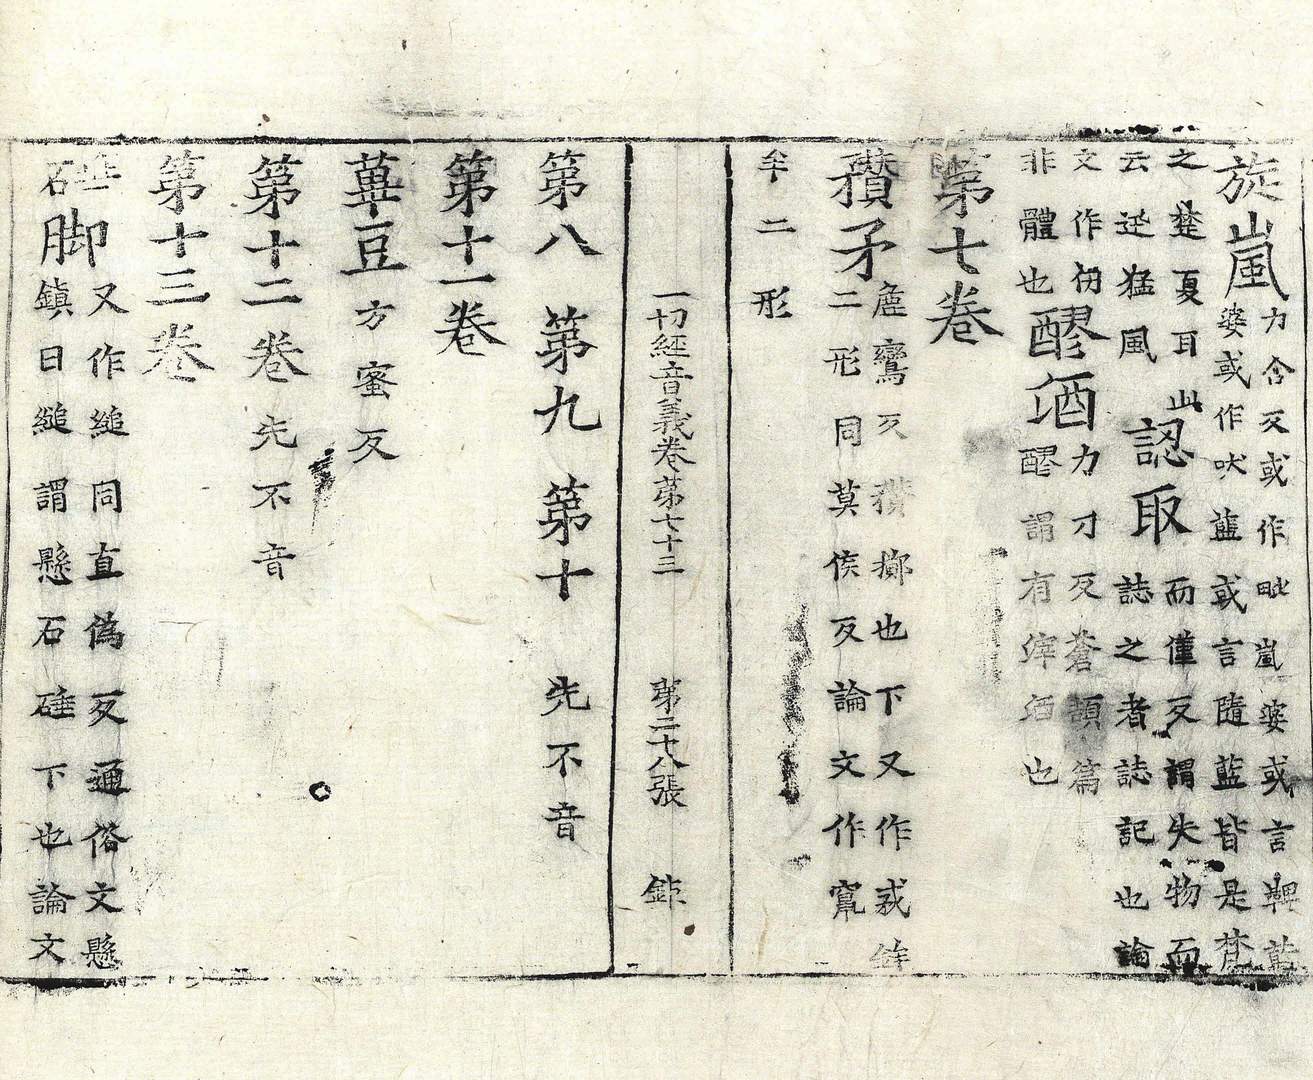 旋嵐力含反或作毗嵐婆或言鞞藍
婆或作吠藍或言隨藍皆是梵
之楚夏耳此認取而僅反謂失物而
云迅猛風誌之者誌記也論
文作仞力刀反蒼頡篇
非體也醪酒醪謂有滓酒也
第七卷
穳矛麁鸞反穳擲也下又作𢦧鉾
二形同莫侯反論文作竄
牟二形
一切經音義卷第七十三 第二十八張 鉅
第八 第九 第十 先不音
第十一卷
蓽豆方蜜反
第十二卷先不音
第十三卷
石脚又作縋同直偽反通俗文懸
鎮曰縋謂懸石硾下也論文